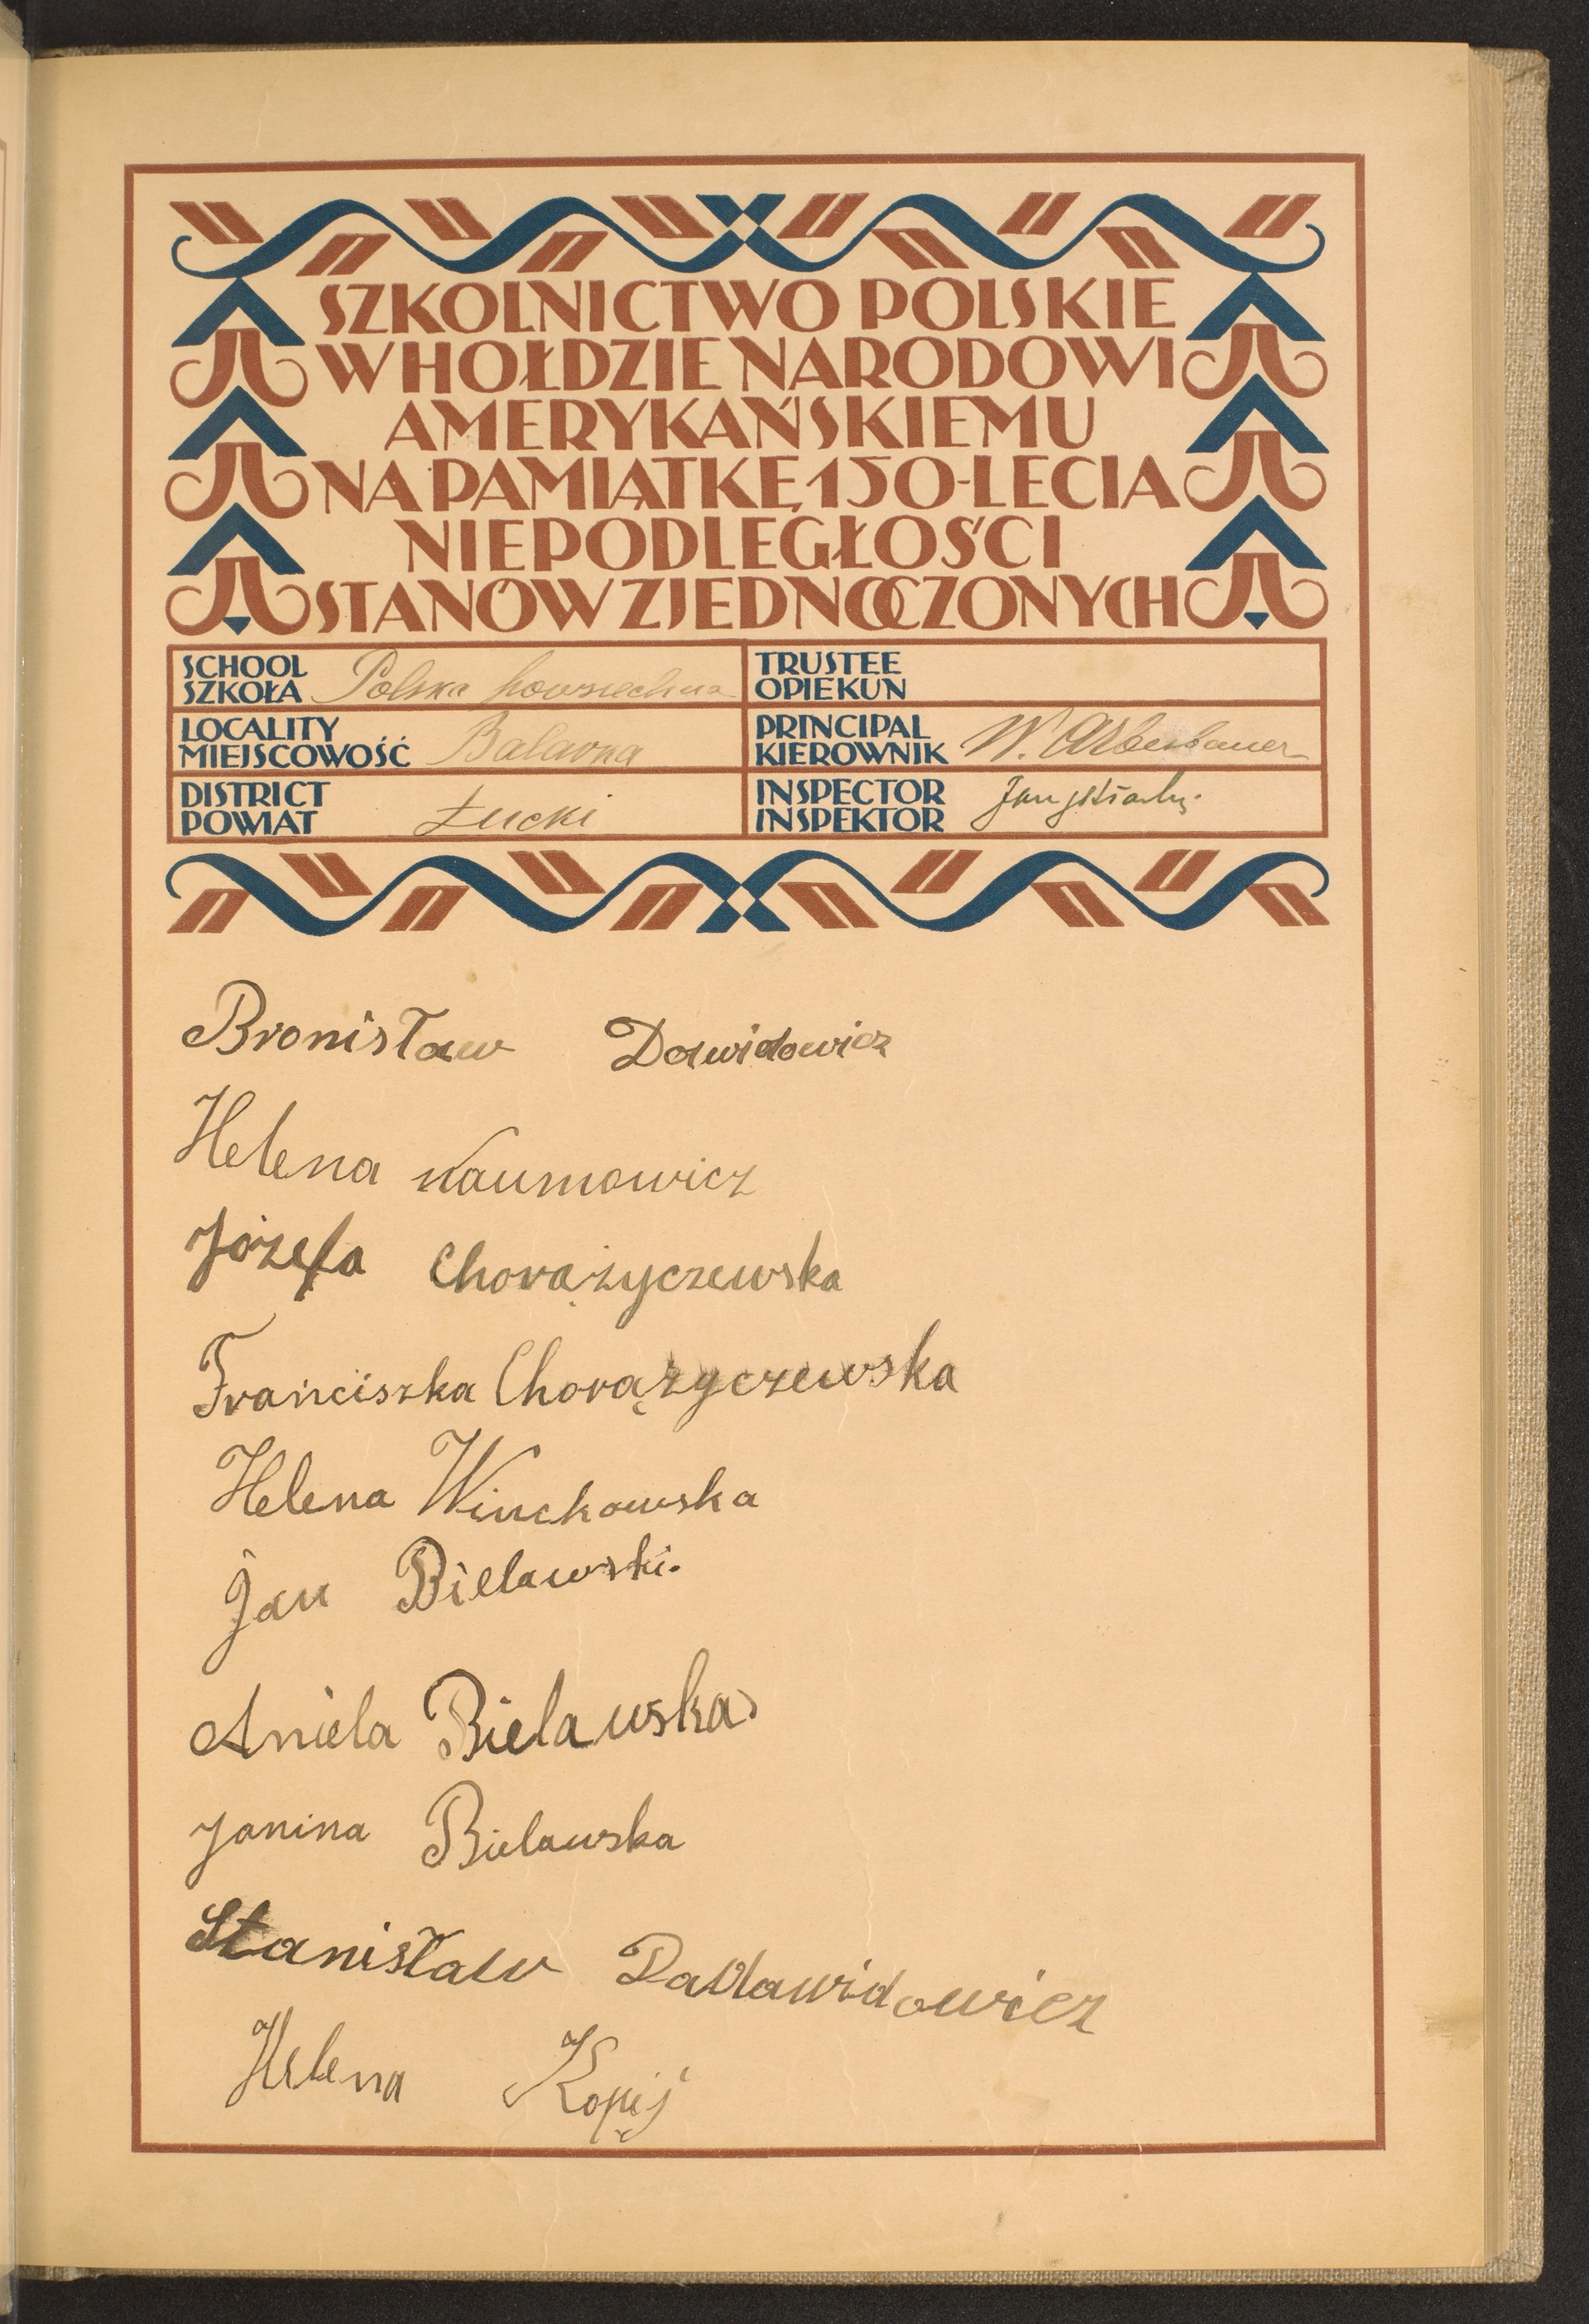 SZKOLNICTWO POLSKIE
W HOŁDZIE NARODOWI
AMERYKAŃSKIEMU
NA PAMIĄTKĘ 150-LECIA
NIEPODLEGŁOŚCI
STANÓW ZJEDNOCZONYCH
SCHOOL
SZKOŁA Polska powszechna
TRUSTEE
OPIEKUN
LOCALITY
MIEJSCOWOŚĆ
PRINCIPAL
KIEROWNIK W.
DISTRICT
POWIAT Łucki
INSPECTOR
INSPEKTOR Jan
Bronisław Dawidowicz
Helena Naumowicz
Józefa Chorążyczewska
Franciszka Chorążyczewska
Helena Winckowska
Jan Bielawski.
Aniela Bielawska
Janina Bielawska
Stanisław
Helena Kopij